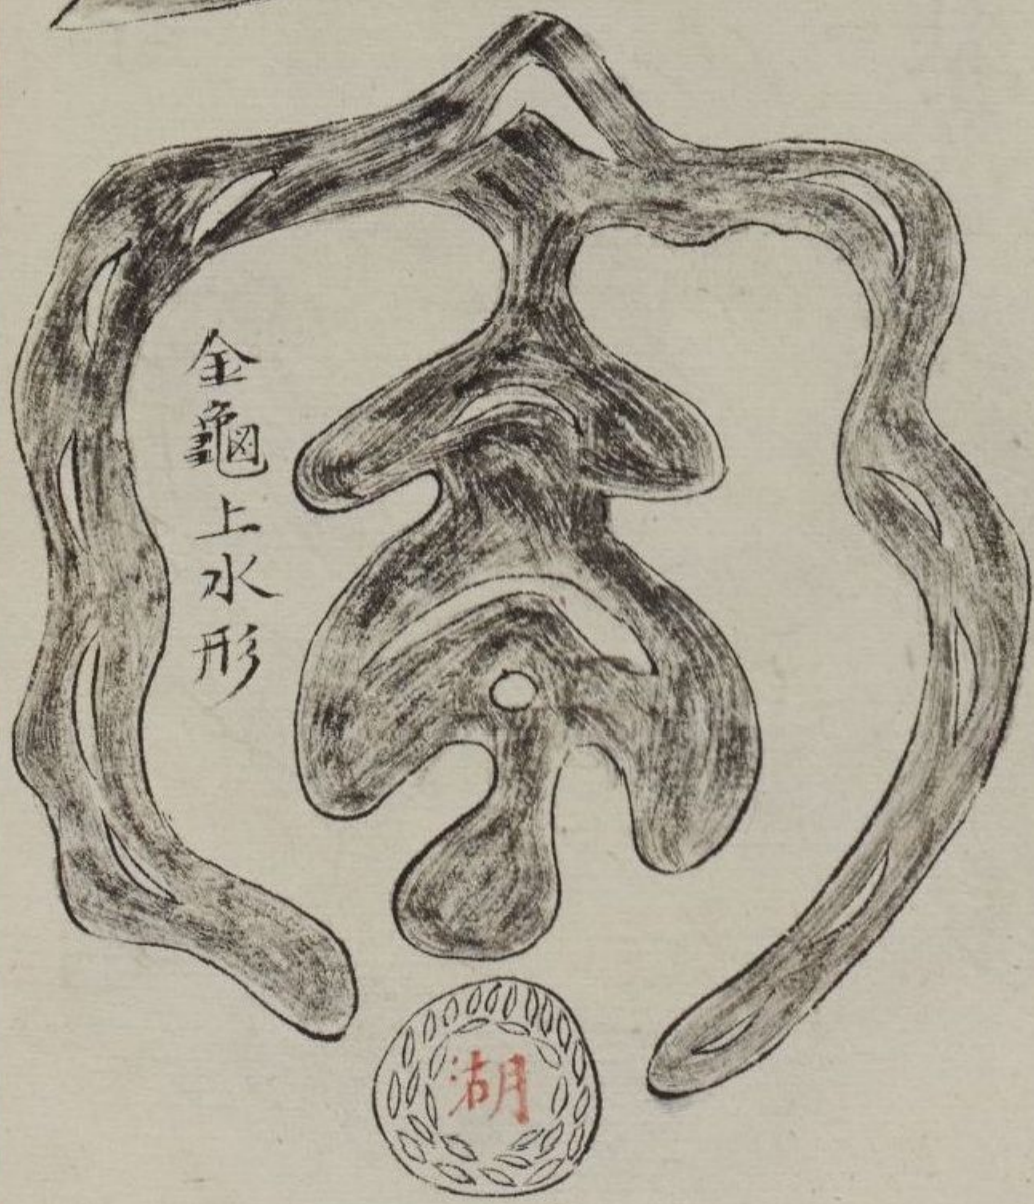 金龜上水形
湖